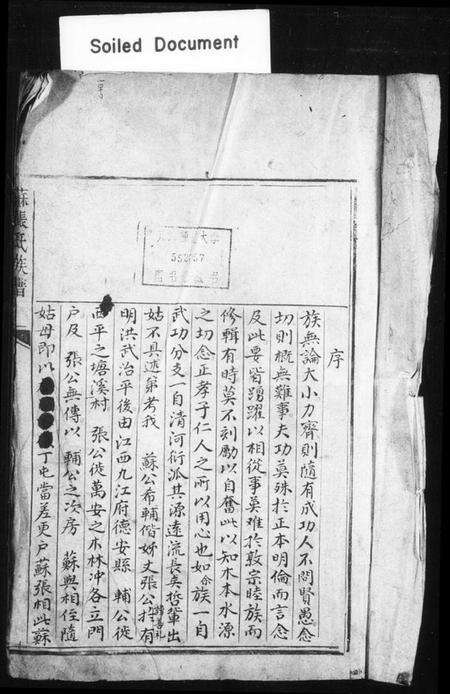 Soiled Document
蘇張氏族譜
592757
序
族無論大小力齊則隨有成功人不問賢愚念
切則概無難事夫功莫殊於正本明倫而言念
及此要皆踴躍以相從事莫难於敦宗睦族而
修輯有時莫不刻勵以自奮此以知木本水源
之切念正孝子仁人之所以用心也如合族一自
武功分支一自清河衍派其源遠流長奕哲輩出
姑不具述第考我 蘇公布輔偕姊丈張公 有
明洪武治平後由江西九江府德安縣 輔公徙
西平之塘溪村 張公徙萬安之木林冲各立門
户及 張公無傳以 輔公之次房 蘇與相侄隨
姑母即以 丁屯當差更户蘇張相此蘇